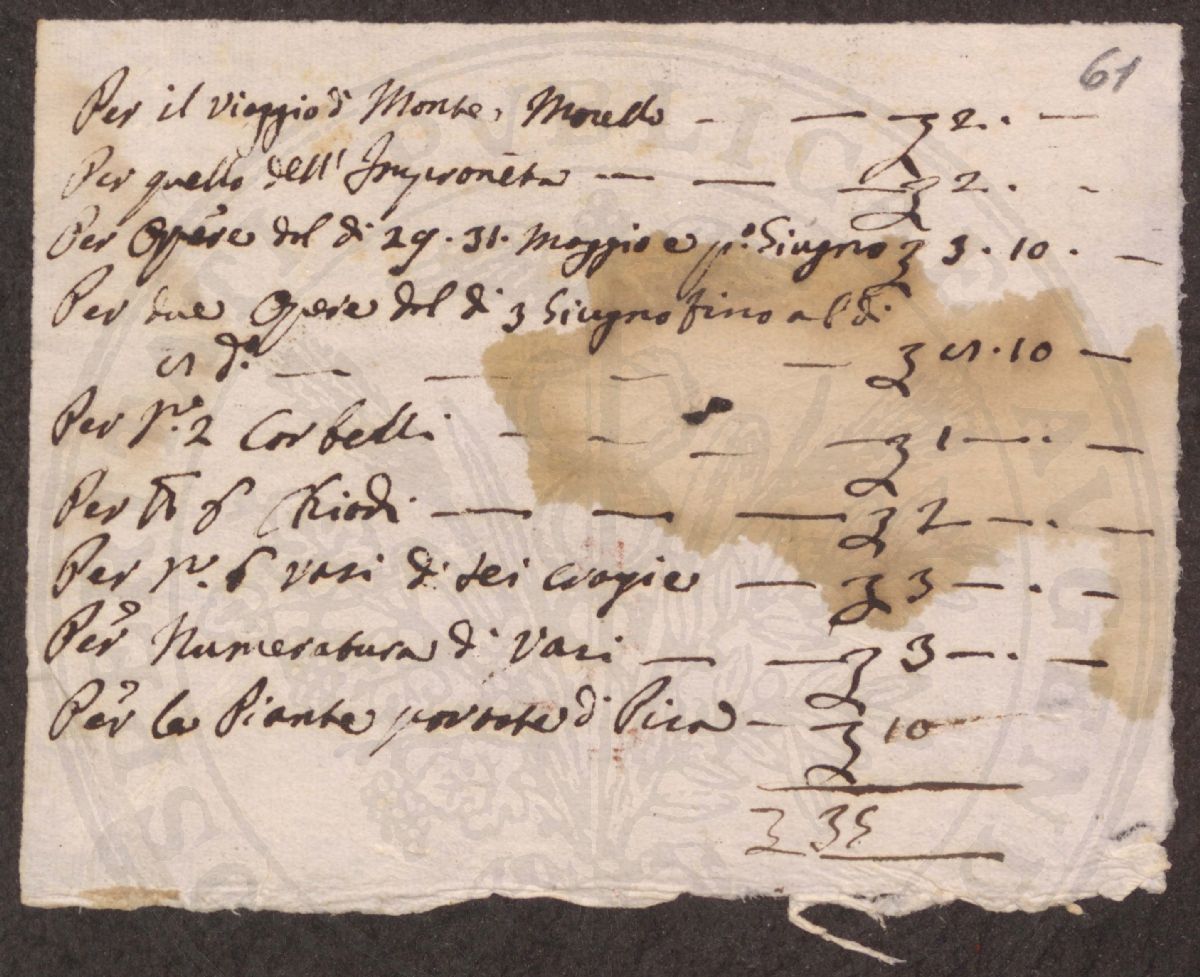 61
Per il viaggio di Monte Morello — — £ 2. —
Per quello dell' Improneta — — — £ 2. -
Per Opere del di 29. 31. Maggio e p.º Giugno £ 3. 10. —
Per due Opere del di 3 Giugno fino al di
8 d.º — — — — £ 8. 10 —
Per n.º 2 Corbelli - — — — £ 1 —. —
Per lb 6 Chiodi — — — £ 2 —. —
Per n.º 6 vasi di sei crazie — £ 3 —. —
Per Numeratura di Vasi — — £ 3 —. —
Per le Piante portate di Pisa — £ 10
£ 35